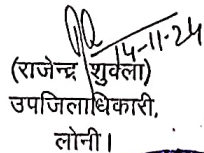 14-11-24
(राजेन्द्र शुक्ला)
उपजिलाधिकारी,
लोनी।